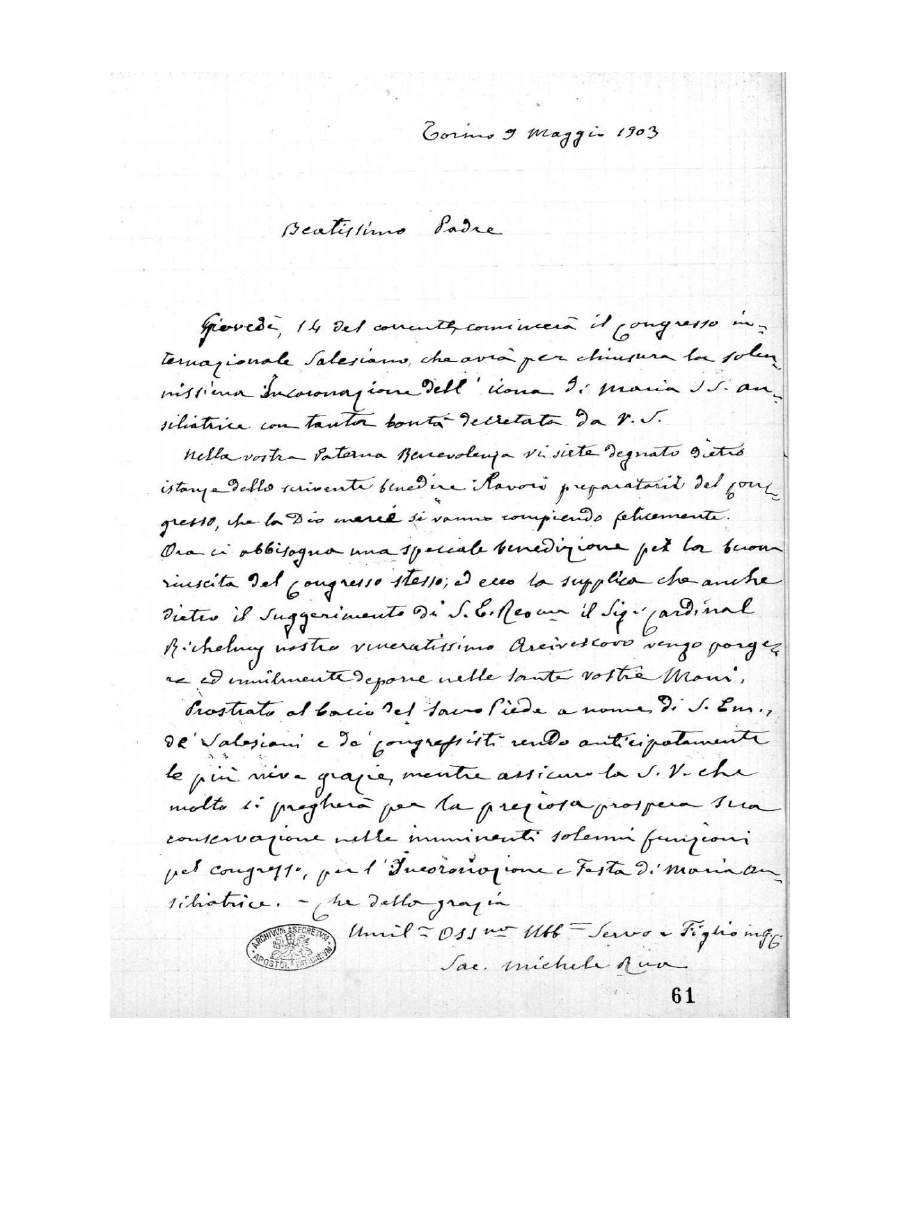 Torino 9 Maggio 1903
Beatissimo Padre
Giovedì, 14 del corrente, comincerà il Congresso in-
ternazionale Salesiano, che avrà per chiusura la solen-
nissima Incoronazione dell' icona di Maria SS. au-
siliatrice con tanta bontà decretata da V. S.
Nella vostra Paterna Benevolenza vi siete degnato dietro
istanza dello scrivente benedire i lavori preparatorii del Con-
gresso, che la Dio mercè si vanno compiendo felicemente.
Ora ci abbisogna una speciale benedizione pel la buona
riuscita del Congresso stesso; ed ecco la supplica che anche
dietro il suggerimento di S. E. Reoma il Sig. Cardinal
Richelmy nostro veneratissimo Arcivescovo vengo porge-
re ed umilmente deporre nelle sante vostre Mani.
Prostrato al bacio del Sacro Piede a nome di S. Em.,
de' Salesiani e de' Congressisti rendo anticipatamente
le più vive grazie, mentre assicuro la S. V. che
molto si pregherà per la preziosa prospera sua
conservazione nelle imminenti solenni funzioni
pel congresso, per l'Incoronazione e Festa di Maria Au-
siliatrice. - Che della grazia
Umil.o Oss.mo Ubb.o Servo e Figlio in G. C.
Sac. Michele Rua
ARCHIVUM SECRETUM APOSTOL. VATICANUM
61